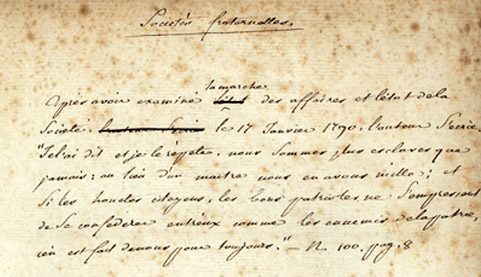 Sociétés fraternelles.
la marche
Après avoir examiné des affaires et l'état de la
Société, le 17 Janvier 1790, l'auteur s'écrie:
"Je l'ai dit et je le répète, nous sommes plus esclaves que
jamais: au lieu d'un maître nous en avons mille; et
si les honnêtes citoyens, les bons patriotes, ne s'empressent
de se confédérer entr'eux comme les ennemis de la patrie,
c'en est fait de nous pour toujours." — N. 100. pag. 8